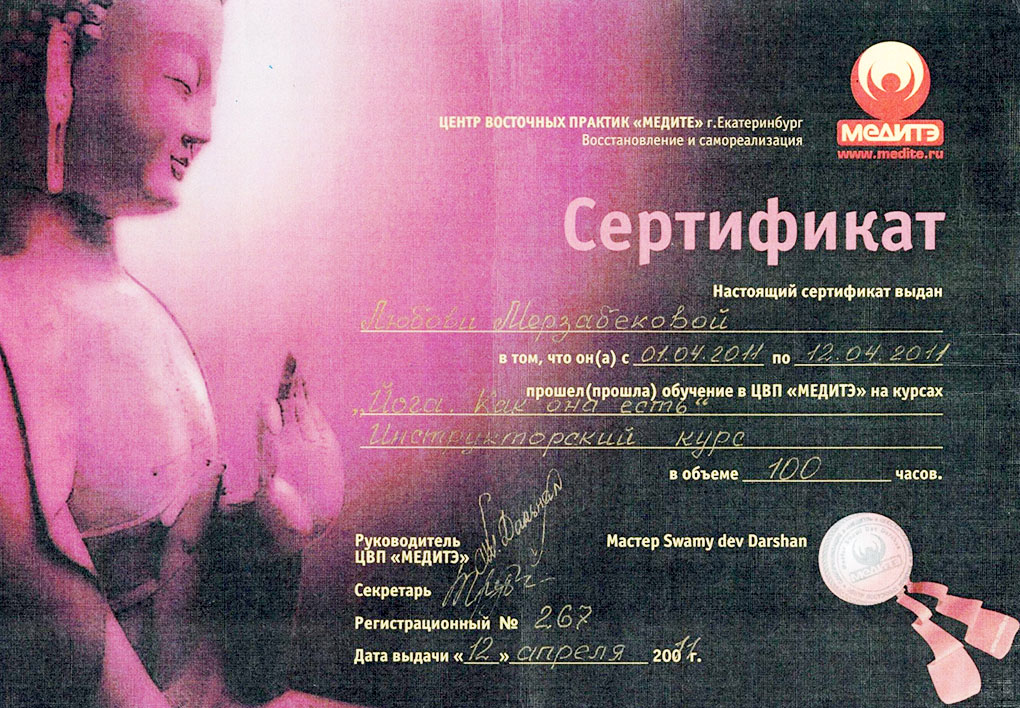 ЦЕНТР ВОСТОЧНЫХ ПРАКТИК «МЕДИТЕ» г.Екатеринбург
Восстановление и самореализация
МЕДИТЭ
www.medite.ru
Сертификат
Настоящий сертификат выдан
Любови Мерзабековой
в том, что он(а) с 01.04.2011 по 12.04.2011
прошел(прошла) обучение в ЦВП «МЕДИТЭ» на курсах
„Йога. Как она есть“
Инструкторский курс
в объеме 100 часов.
Руководитель
ЦВП «МЕДИТЭ»
Мастер Swamy dev Darshan
Секретарь
Регистрационный № 267
Дата выдачи «12» апреля 2011г.
МЕДИТЭ